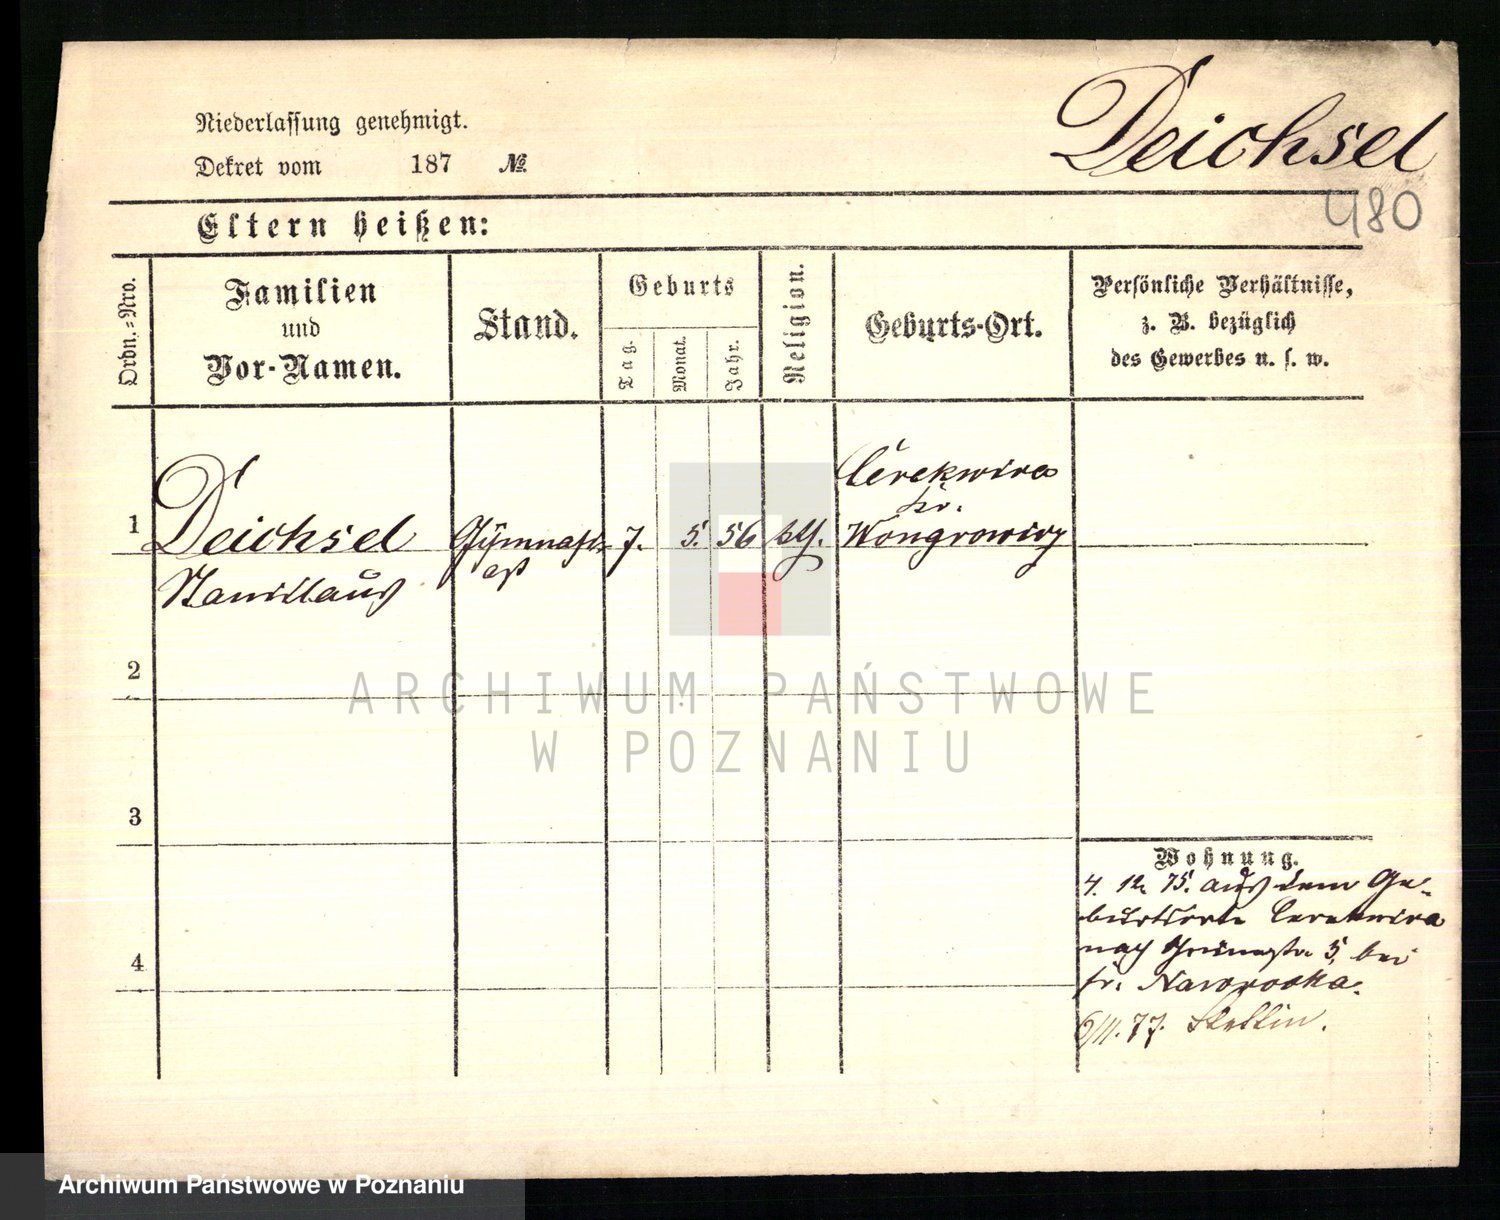 Deichsel
480
Niederlassung genehmigt.
Dekret vom 187 №
Eltern heißen:
Ordn.-Nro.
Familien
und
Vor-Namen.
Stand.
Geburts
Tag.
Monat.
Jahr.
Religion.
Geburts-Ort.
Persönliche Verhältnisse,
z. B. bezüglich
des Gewerbes u. s. w.
1
Deichsel
Stanislaus
Gymnasi-
ast
7. 5. 56
kth.
Cerekwica
Kr.
Wongrowicz
2
3
4
Wohnung.
4. 12. 75. aus dem Ge-
burtsorte Cerekwica
nach 5, bei
Fr. Nawrocka.
6/11. 77. Stettin.
ARCHIWUM PAŃSTWOWE
W POZNANIU
Archiwum Państwowe w Poznaniu